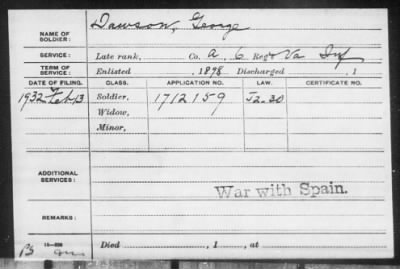 NAME OF SOLDIER: Dawson, George
SERVICE: Late rank, Co. A, 6 Reg't Va Inf
TERM OF SERVICE: Enlisted , 1898 Discharged , 1
DATE OF FILING. CLASS. APPLICATION NO. LAW. CERTIFICATE NO.
1932 Feb 13 Soldier, 1712159 J2-30
Widow,
Minor,
ADDITIONAL SERVICES:
War with Spain.
REMARKS:
Died , 1 , at